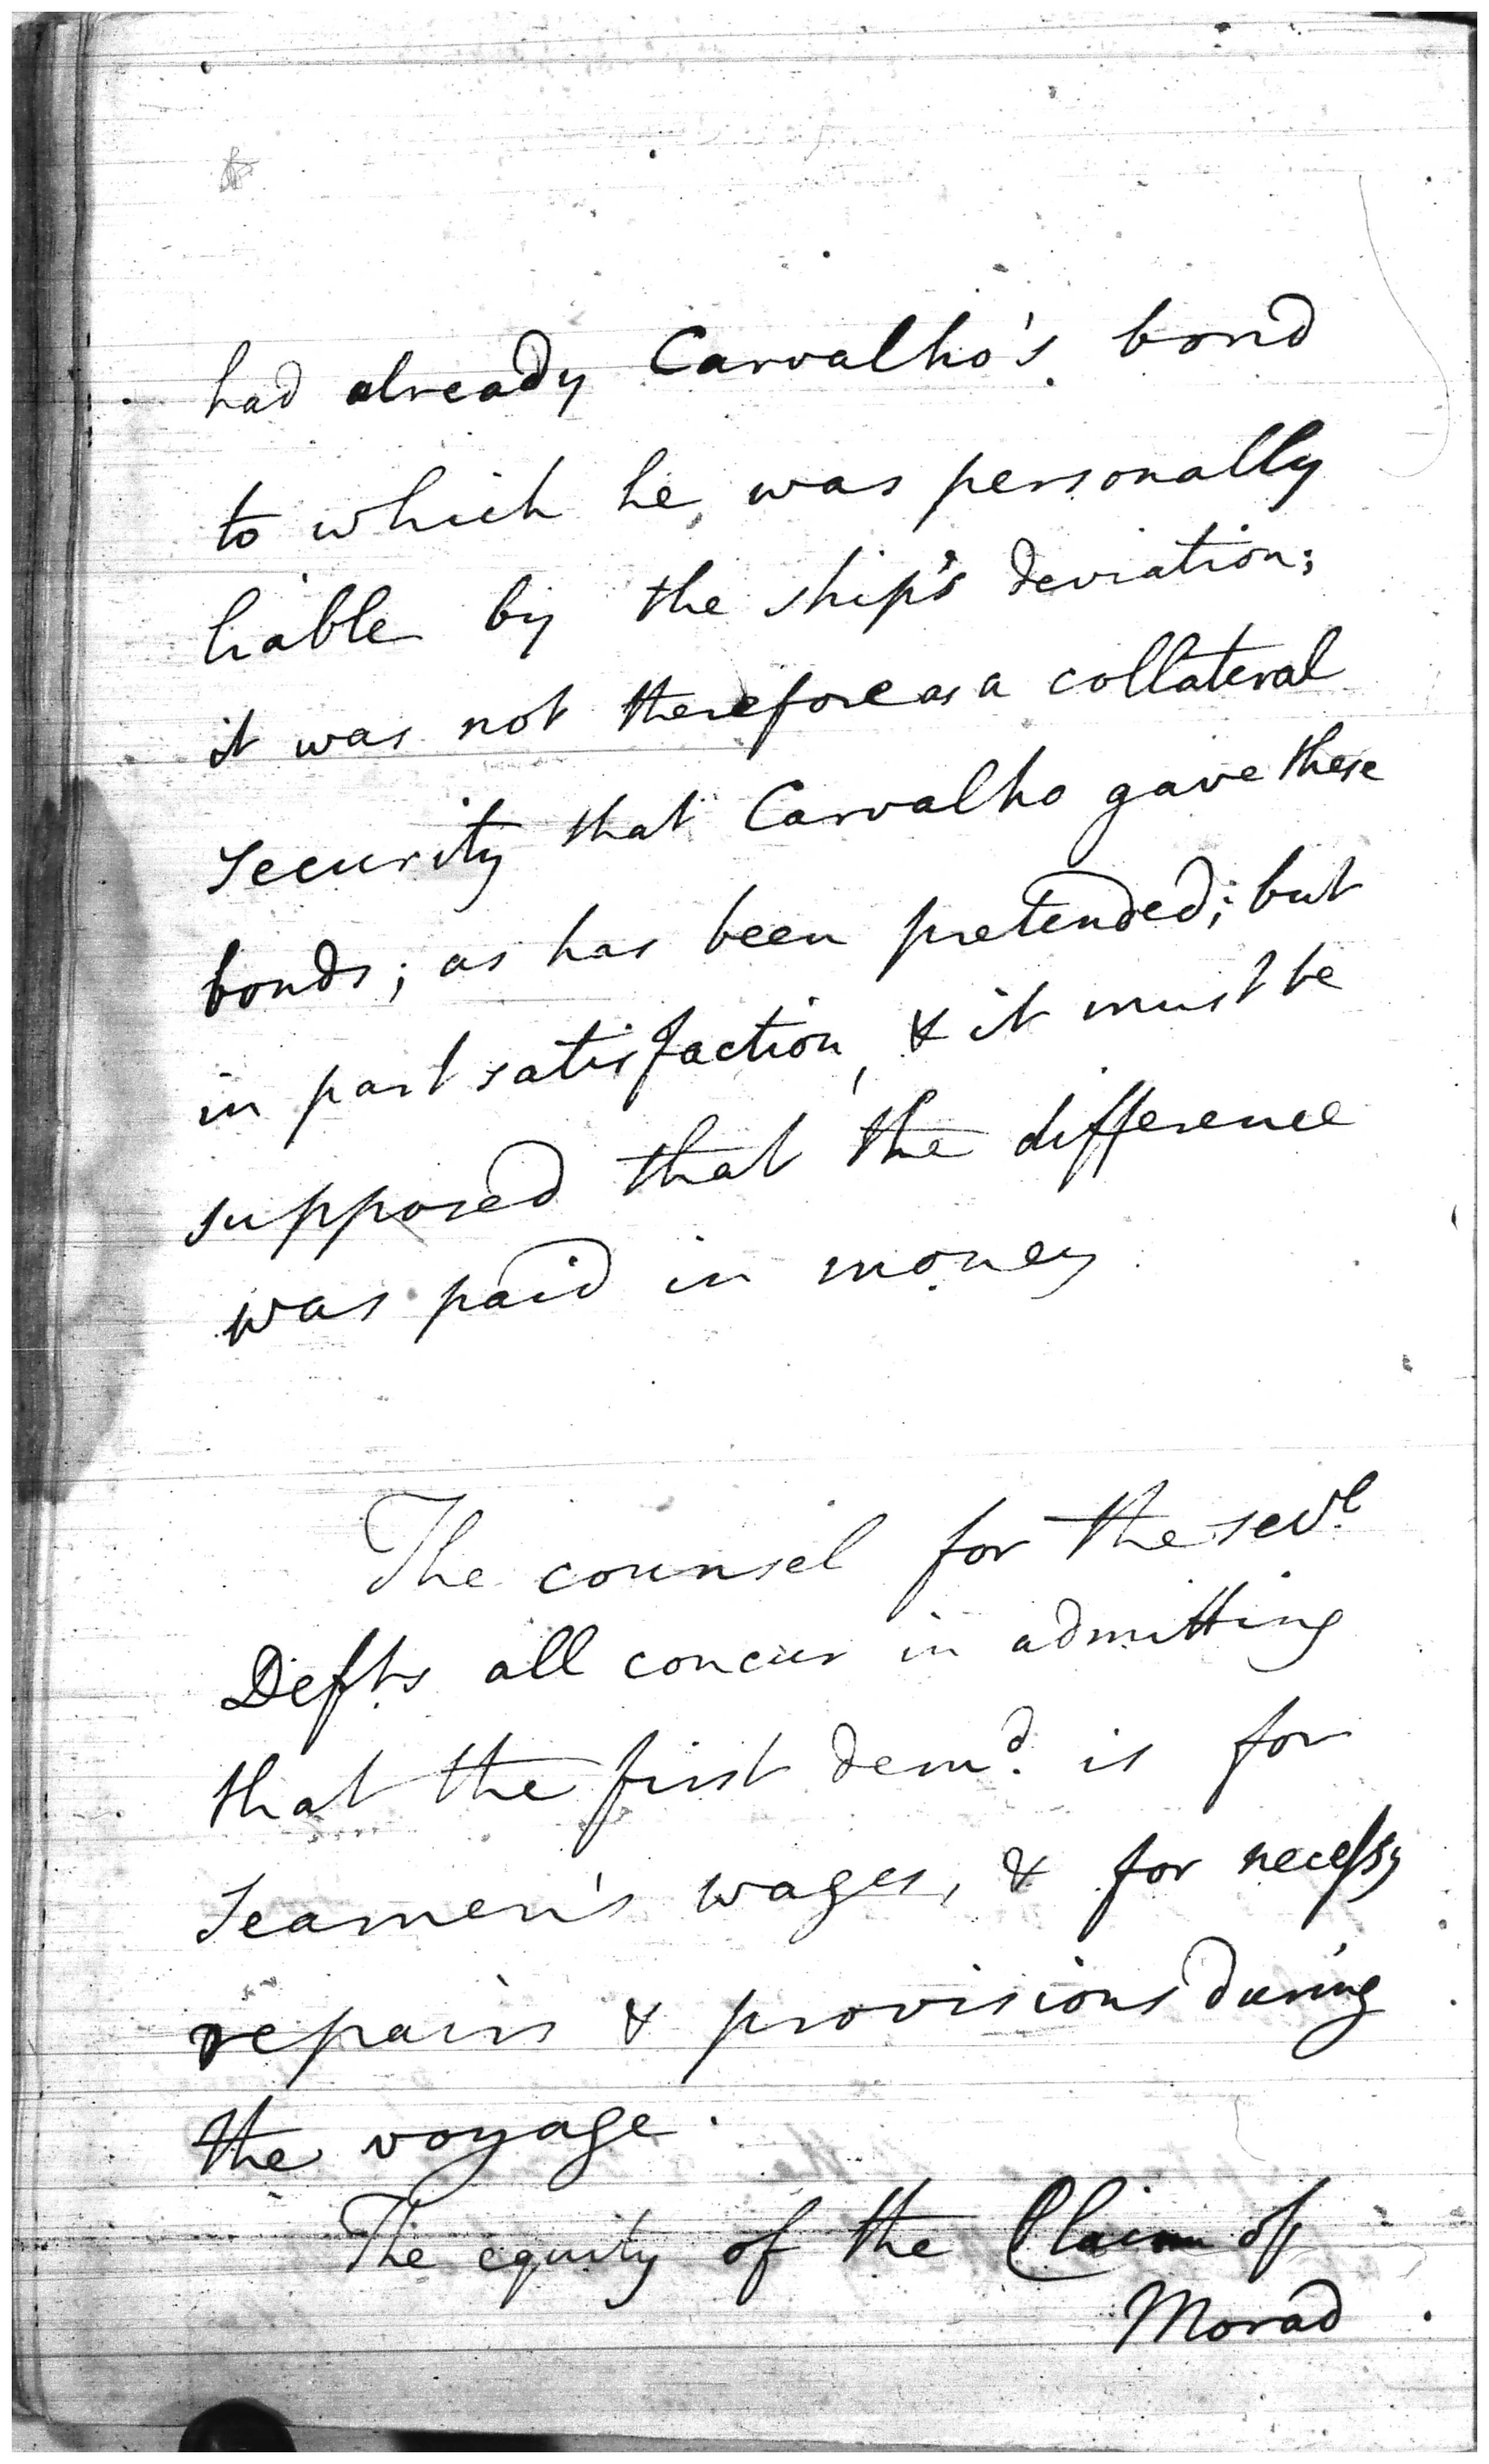 had already Carvalho's bond
to which he, was personally
liable by the ship's deviation;
it was not therefore as a collateral
security that Carvalho gave these
bonds; as has been pretended; but
in part satisfaction, & it must be
supposed that the difference
was paid in money.
The counsel for the sevl.
Defts all concur in admitting
that the first demd. is for
Seamen's wages, & for necessy
repairs & provisions during
the voyage.
The equity of the Claim of
Morad